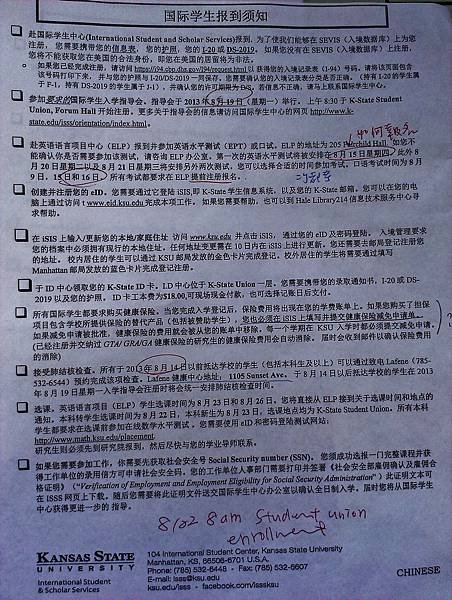 国际学生报到须知
赴国际学生中心(International Student and Scholar Services)报到, 为了使我们能够在 SEVIS（入境数据库）上为您
注册, 您需要携带您的信息表, 您的护照, 您的 I-20 或 DS-2019。如果您没有在 SEVIS（入境数据库）上注册,
您将不能获取您在美国的合法身份, 即您在美国的居留将为非法。
如果您已经完成注册, 请访问 https://i94.cbp.dhs.gov/i94/request.html 以获得您的入境记录表（I-94）号码, 请将该页面包含
该号码打印下来, 并与您的护照与 I-20/DS-2019 一同保存。您需要确认您的入境记录表分类是否正确。（持有 I-20 的学生属
于 F-1, 持有 DS-2019 的学生属于 J-1), 并确认您的许可期限为 D/S。若信息不正确, 请马上联系国际学生中心。
参加要求的国际学生入学指导会。指导会于 2013 年 8 月 19 日（星期一）举行。上午 8:30 于 K-State Student
Union, Forum Hall 开始注册。更多关于指导会的信息请访问国际学生中心的网页 http://www.k-
state.edu/isss/orientation/index.html。
如何报名
赴英语语言项目中心（ELP）报到并参加英语水平测试（EPT）或口试。ELP 的地址为 205 Fairchild Hall。如您不
能确认你是否需要参加该测试, 请咨询 ELP 办公室。第一次的英语水平测试将被安排在 8 月 15 日星期四。此外 8
月 20 日星期二以及 8 月 21 日星期三将安排另外两次测试。您可以选择合适的时间参加考试。口语考试时间为 8
月 9 日, 15 日和 16 日。所有考试都要求在 ELP 提前注册报名。
创建并注册您的 eID。您需要通过它登陆 iSIS,即 K-State 学生信息系统, 以及您的 K-State 邮箱。您可以在您的电
脑上通过访问 www.eid.ksu.edu 完成本项工作。如果您需要帮助, 您也可以到 Hale Library214 信息技术服务中心寻
求帮助。
在 iSIS 上输入/更新您的本地/家庭住址 访问 www.ksu.edu 并点击 iSIS, 通过您的 eID 及密码登陆。 入境管理要求
您的档案中必须拥有现行的本地住址。任何地址变更需在 10 日内在 iSIS 上进行更新。您还需要去邮局登记注册您
的地址。校内居住的学生可以通过 KSU 邮局发放的蓝色卡片完成登记。校外居住的学生将需要通过填写
Manhattan 邮局发放的蓝色卡片完成登记注册。
于 ID 中心领取您的 K-State ID 卡。I.D 中心位于 K-State Union 一层。您需要携带您的录取通知书, I-20 或 DS-
2019 以及您的护照。ID 卡工本费为$18.00,可现场现金付款, 也可选择记账日后支付。
所有国际学生都要求购买健康保险。当您完成入学登记后, 保险费用将出现在您的学费账单上。如果您购买了担保
项目包含学校所提供保险的替代产品（包括被赞助学生), 您也必须在 iSIS 上填写并提交健康保险减免申请单。
如果减免申请被批准, 健康保险的费用就会被从您的账单中移除。每一个学期在 KSU 入学时都必须提交减免申请。
(已经注册并交纳过 GTA/ GRA/GA 健康保险的研究生的健康保险费用会自动消除。 届时会收到邮件以确认保险费用
的消除)
接受肺结核检查。所有于 2013 年 8 月 14 日以前抵达学校的学生（包括本科生及以上）可以通过致电 Lafene（785-
532-6544）预约完成该项检查。Lafene 健康中心地址: 1105 Sunset Ave。于 8 月 14 日以后抵达学校的学生在 2013
年 8 月 19 日星期一入学指导会注册时将会统一安排肺结核检查时间。
选课。英语语言项目（ELP）学生选课时间为 8 月 23 日和 8 月 26 日。您将直接从 ELP 接到关于选课时间和地点的
通知。本科转学生选课时间为 8 月 22 日, 本科新生为 8 月 23 日, 选课地点均为 K-State Student Union。所有本科
学生都要求在选课前参加在线数学水平测试。您需要使用 eID 和密码登陆测试网站:
http://www.math.ksu.edu/placement
研究生则必须先到研究院报到, 然后尽快与您的学业导师联系。
如果您需要参加工作, 你需要先获取社会安全号 Social Security number (SSN)。您须成功选报一门完整课程并获
得工作单位的录用信方可申请社会安全码。您的工作单位人事部门需要打印并签署《社会安全部雇佣确认及雇佣合
格证明》（"Verification of Employment and Employment Eligibility for Social Security Administration"）此证明文本可
在 ISSS 网页上下载。随后您需要将此证明文件送交国际学生中心办公室以确认全日制入学。届时您将从国际学生
中心获得更进一步的 指导。
8/22 8am Student union
enrollment
KANSAS STATE
UNIVERSITY
International Student
& Scholar Services
104 International Student Center, Kansas State University
Manhattan, KS, 66506-6701 U.S.A.
Phone: (785) 532-6448 - Fax: (785) 532-6607
E-mail: isss@ksu.edu
ksu.edu/isss - facebook.com/isssksu
CHINESE